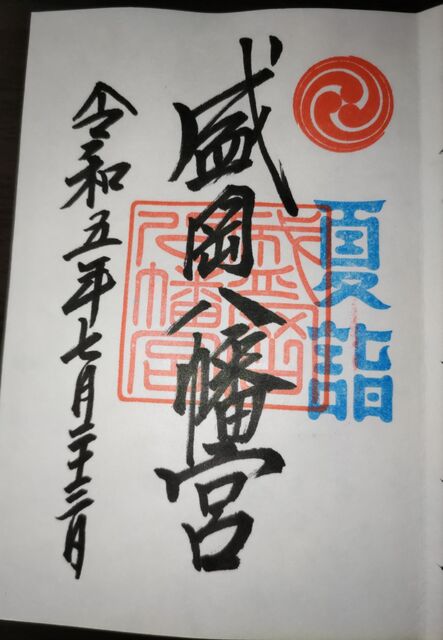 夏詣
盛岡八幡宮
盛岡
八幡宮
令和五年七月二十三日